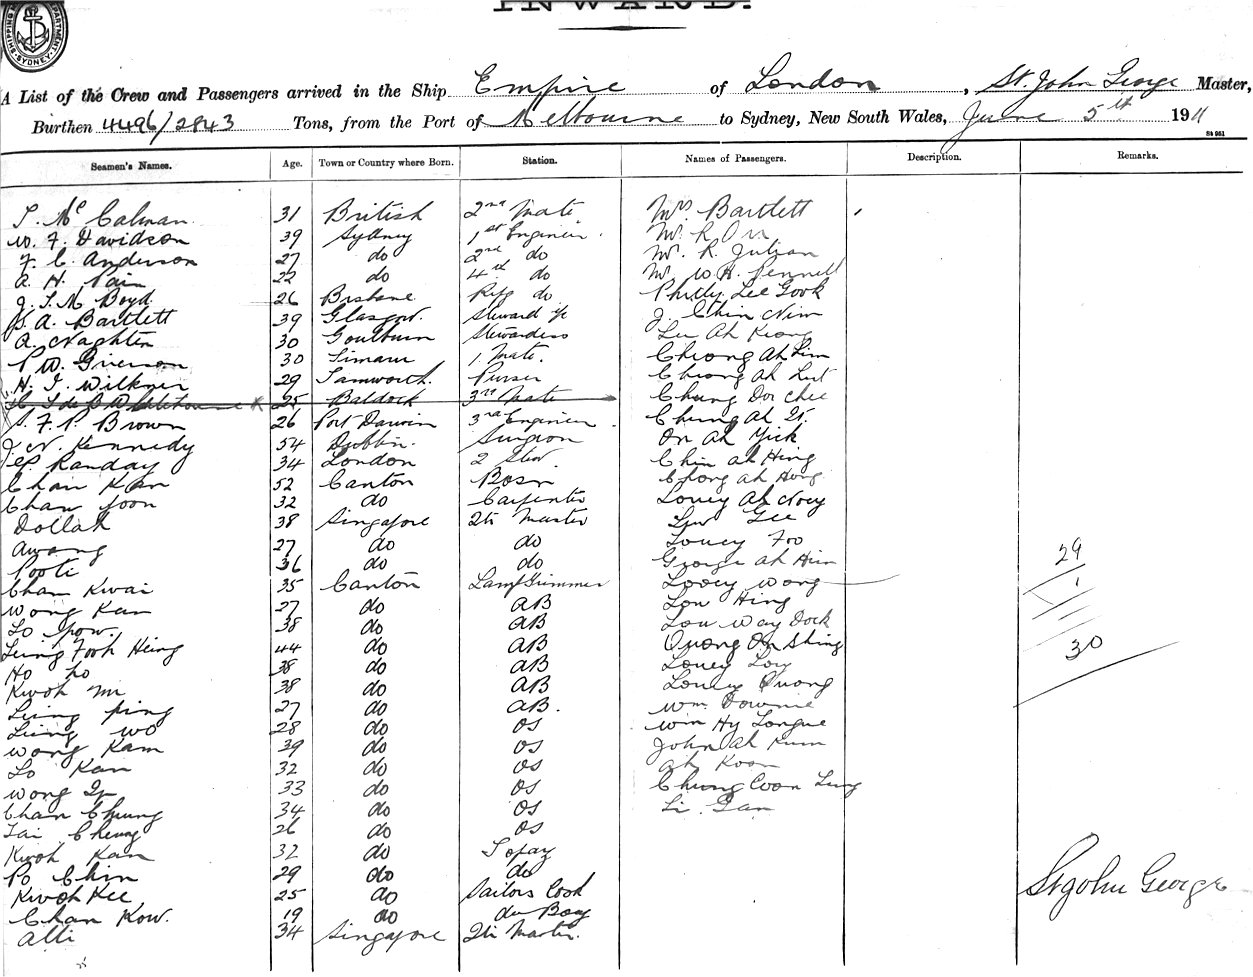 INWARD.
SHIPPING DEPARTMENT. SYDNEY.
A List of the Crew and Passengers arrived in the Ship Empire of London, St. John George Master,
Burthen 4496/2843 Tons, from the Port of Melbourne to Sydney, New South Wales, June 5th 1911
Seamen's Names. Age. Town or Country where Born. Station. Names of Passengers. Description. Remarks.
Mc Calman 31 British 2nd Mate Bartlett
W. F. Davidson 39 Sydney 1st Engineer Mr R Orr
F. C. Anderson 27 do 2nd do Mr. R. Julian
A. H. Pain 22 do 4th do Mr W H. Pennell
J. S. M. Boyd 26 Brisbane do Philly Lee Gook
A. Bartlett 39 Glasgow Steward J. Chin Nim
A. Naghten 30 Goulburn Stewardess Lee Ah Keong
P. W. Grierson 30 Timaru 1 Mate. Cheong Ah Lim
H. J. Wilkner 29 Tamworth. Purser Cheong Ah Lut
25 Baldock 3rd Mate Chung Dor Chee
S. F. P. Brown 26 Port Darwin 3rd Engineer Chung Ah
J. N. Kennedy 54 Dublin. Surgeon On Ah Yick
Randay 34 London 2 Stew. Chin Ah Hing
Chan Kan 52 Canton Bosn Chong Ah Hong
Chan Joon 32 do Carpenter Louey Ah Noey
Dollah 38 Singapore Qtr Master Low Gee
Awang 27 do do Louey Foo
Pooti 36 do do George Ah Him 29
Chan Kwai 35 Canton Lamp Trimmer Louey Wong 1
Wong Kan 27 do AB Low Hing
Lo Pow. 38 do AB Low Way Dock
Leung Fook Heing 44 do AB Quong On Shing 30
Ho Ho 38 do AB Louey Loy
Kwok Mi 38 do AB Louey Quong
Leung Ping 27 do AB. Wm Downie
Leung Wo 28 do OS Wm Hy Longue
Wong Kam 39 do OS John Ah Kum
Lo Kan 32 do OS Ah Koon
Wong 33 do OS Cheong Coon Lung
Chan Cheung 34 do OS Li Gan
Tai Cheung 26 do OS
Kwok Kan 32 do Topay
Po Chin 29 do do
Kwok Kee 25 do Sailors Cook St John George
Chan Kow. 19 do do Boy
Alli 34 Singapore Qtr Master.